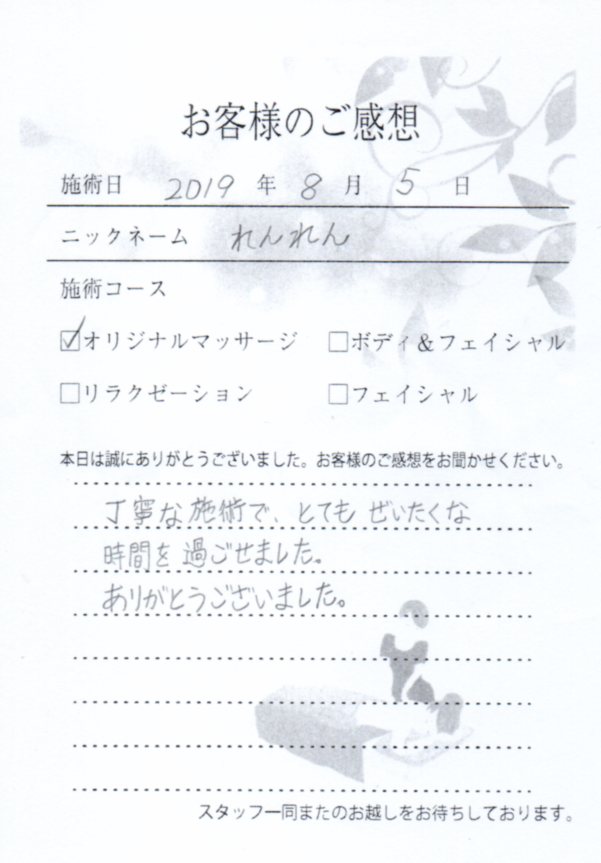 お客様のご感想
施術日 2019 年 8 月 5 日
ニックネーム れんれん
施術コース
☑オリジナルマッサージ □ボディ&フェイシャル
□リラクゼーション □フェイシャル
本日は誠にありがとうございました。お客様のご感想をお聞かせください。
丁寧な施術で、とても ぜいたくな
時間を過ごせました。
ありがとうございました。
スタッフ一同またのお越しをお待ちしております。